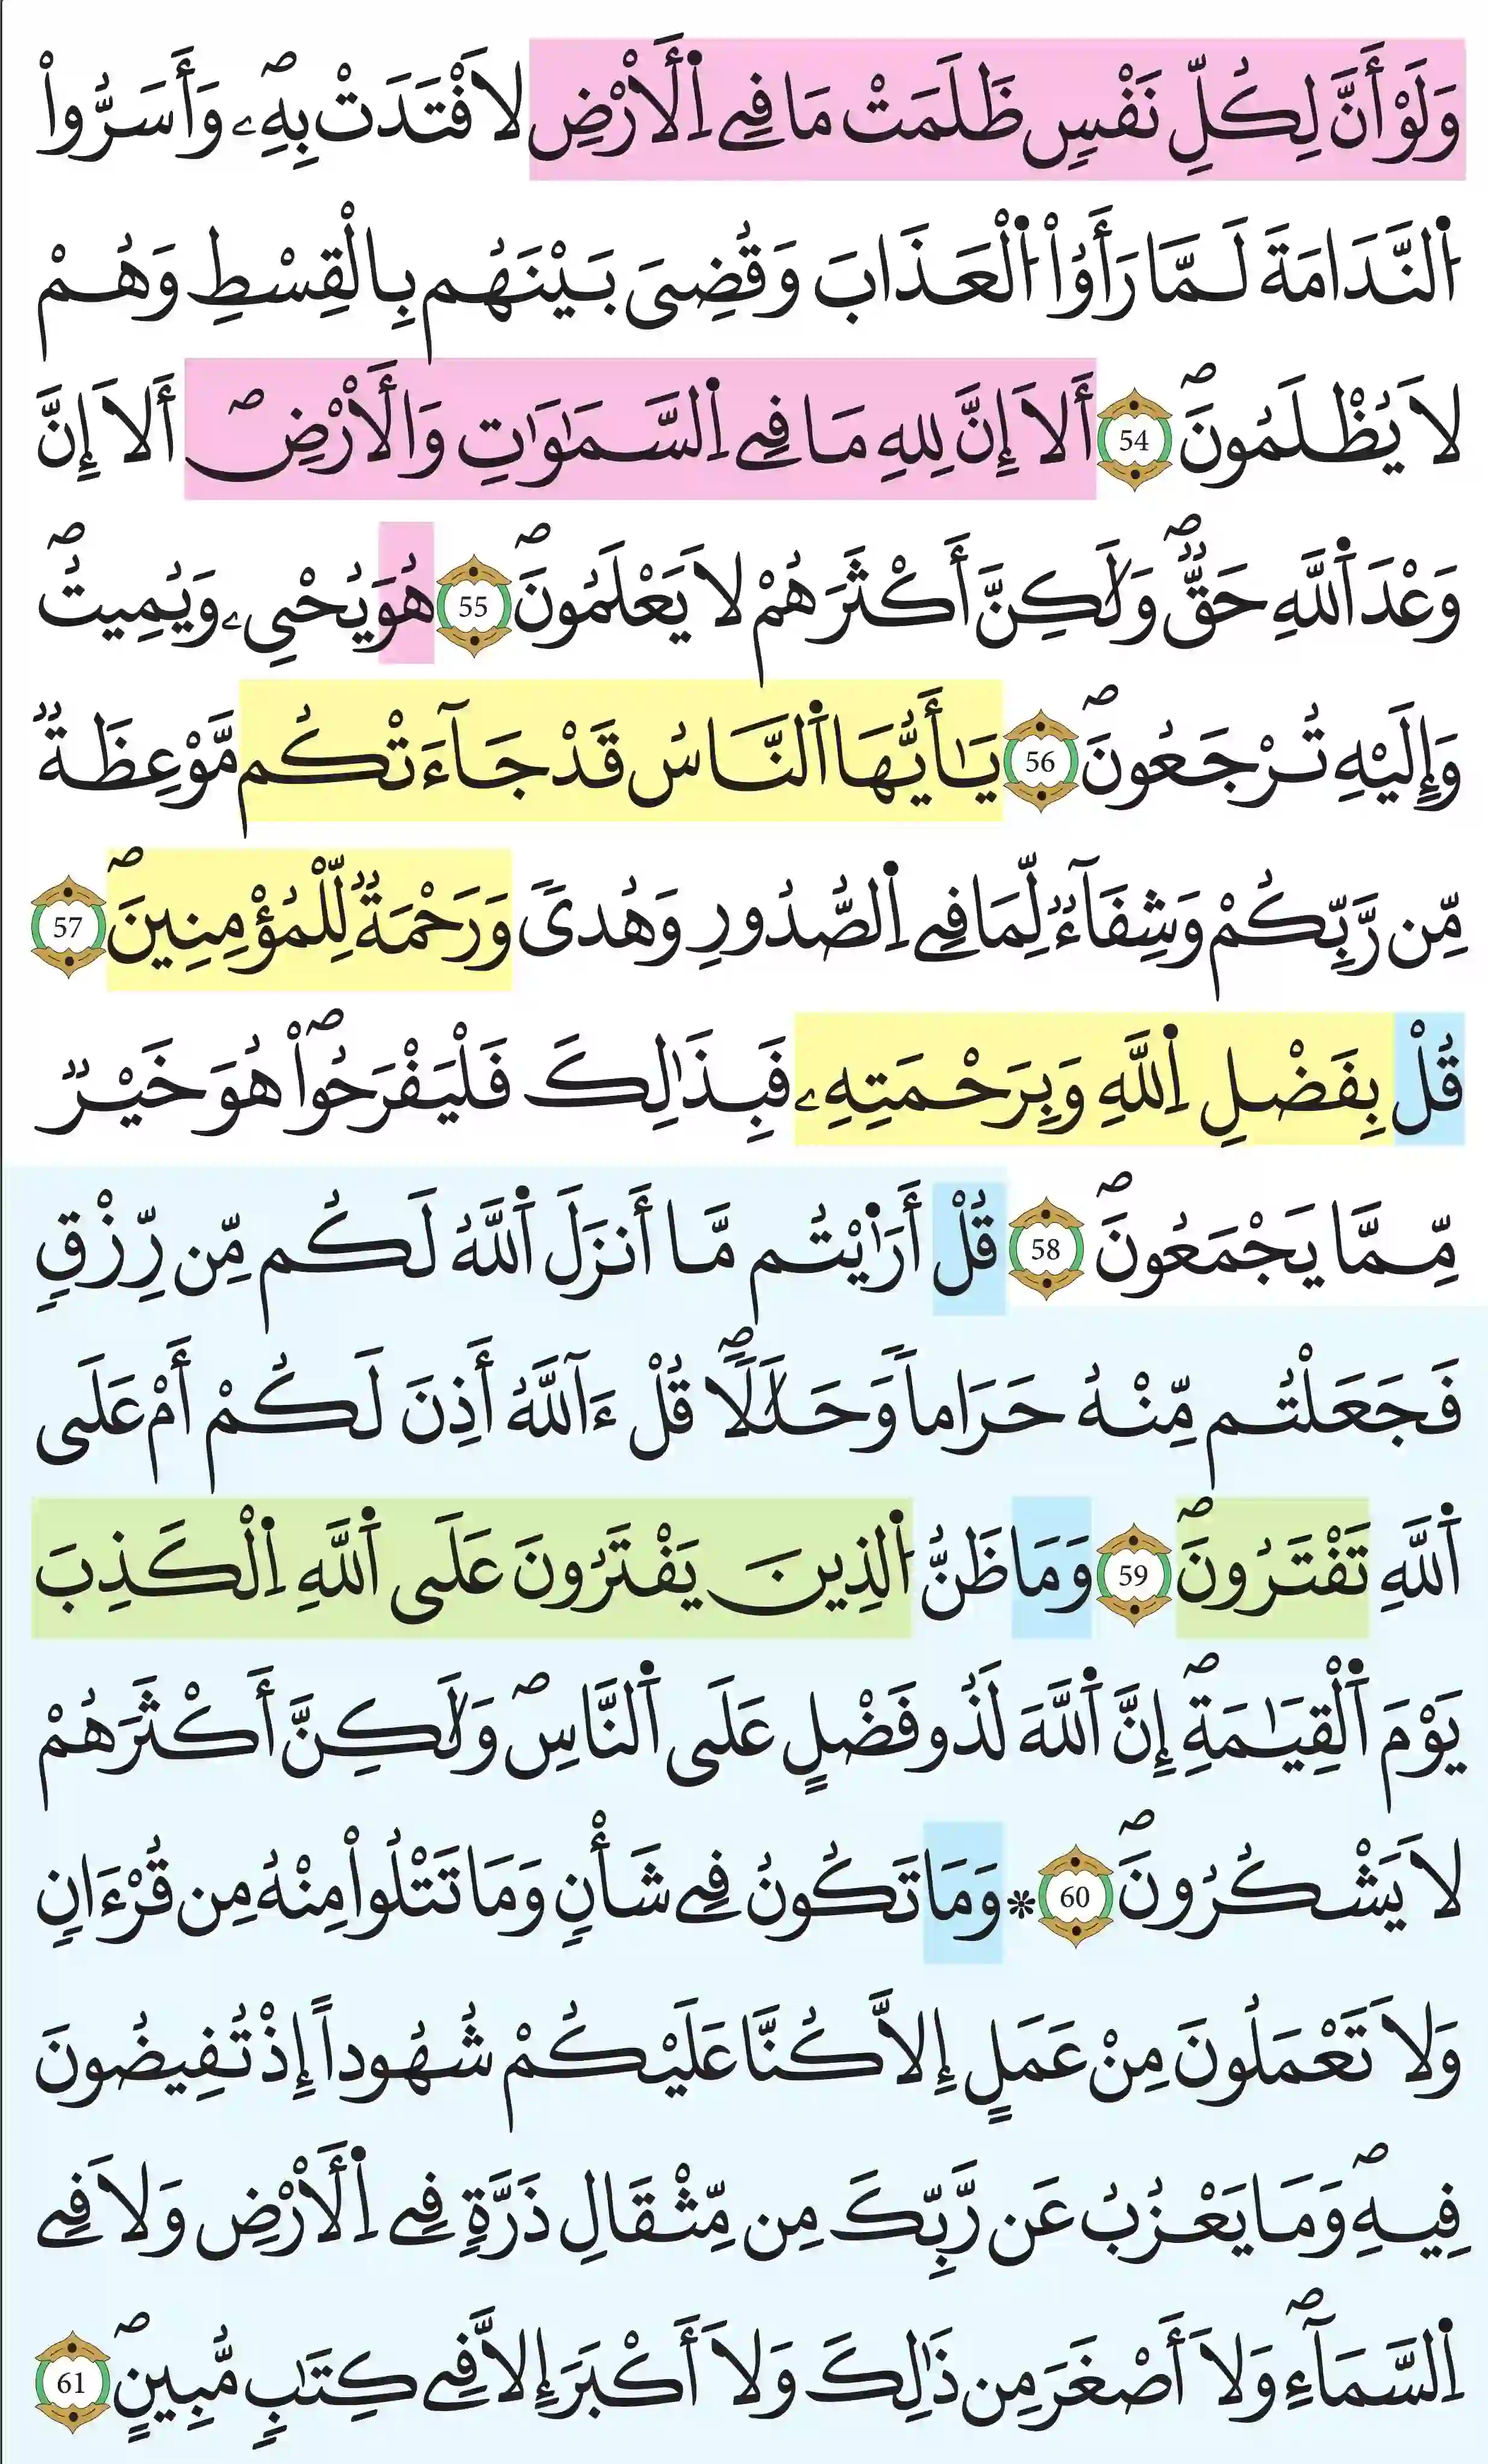 وَلَوْ أَنَّ لِكُلِّ نَفْسٖ ظَلَمَتْ مَا فِے اِ۬لَارْضِ لَافْتَدَتْ بِهِۦۖ وَأَسَرُّواْ
اُ۬لنَّدَامَةَ لَمَّا رَأَوُاْ اُ۬لْعَذَابَ وَقُضِيَ بَيْنَهُم بِالْقِسْطِ وَهُمْ
لَا يُظْلَمُونَۖ 54 أَلَا إِنَّ لِلهِ مَا فِے اِ۬لسَّمَٰوَٰتِ وَالَارْضِۖ أَلَا إِنَّ
وَعْدَ اَ۬للَّهِ حَقّٞۖ وَلَٰكِنَّ أَكْثَرَهُمْ لَا يَعْلَمُونَۖ 55 هُوَ يُحْيِۦ وَيُمِيتُۖ
وَإِلَيْهِ تُرْجَعُونَۖ 56 يَٰأَيُّهَا اَ۬لنَّاسُ قَدْ جَآءَتْكُم مَّوْعِظَةٞ
مِّن رَّبِّكُمْ وَشِفَآءٞ لِّمَا فِے اِ۬لصُّدُورِ وَهُدىٗ وَرَحْمَةٞ لِّلْمُؤْمِنِينَۖ 57
قُلْ بِفَضْلِ اِ۬للَّهِ وَبِرَحْمَتِهِۦ فَبِذَٰلِكَ فَلْيَفْرَحُواْۖ هُوَ خَيْرٞ
مِّمَّا يَجْمَعُونَۖ 58 قُلْ أَرَٰيْتُم مَّا أَنزَلَ اَ۬للَّهُ لَكُم مِّن رِّزْقٖ
فَجَعَلْتُم مِّنْهُ حَرَاماٗ وَحَلَٰلاٗۖ قُلْ ءَآللَّهُ أَذِنَ لَكُمْ أَمْ عَلَى
اَ۬للَّهِ تَفْتَرُونَۖ 59 وَمَا ظَنُّ اُ۬لذِينَ يَفْتَرُونَ عَلَى اَ۬للَّهِ اِ۬لْكَذِبَ
يَوْمَ اَ۬لْقِيَٰمَةِۖ إِنَّ اَ۬للَّهَ لَذُو فَضْلٍ عَلَى اَ۬لنَّاسِۖ وَلَٰكِنَّ أَكْثَرَهُمْ
لَا يَشْكُرُونَۖ 60 * وَمَا تَكُونُ فِے شَأْنٖ وَمَا تَتْلُواْ مِنْهُ مِن قُرْءَانٖ
وَلَا تَعْمَلُونَ مِنْ عَمَلٍ إِلَّا كُنَّا عَلَيْكُمْ شُهُوداً إِذْ تُفِيضُونَ
فِيهِۖ وَمَا يَعْزُبُ عَن رَّبِّكَ مِن مِّثْقَالِ ذَرَّةٖ فِے اِ۬لَارْضِ وَلَا فِے
اِ۬لسَّمَآءِۖ وَلَا أَصْغَرَ مِن ذَٰلِكَ وَلَا أَكْبَرَ إِلَّا فِے كِتَٰبٖ مُّبِينٍۖ 61